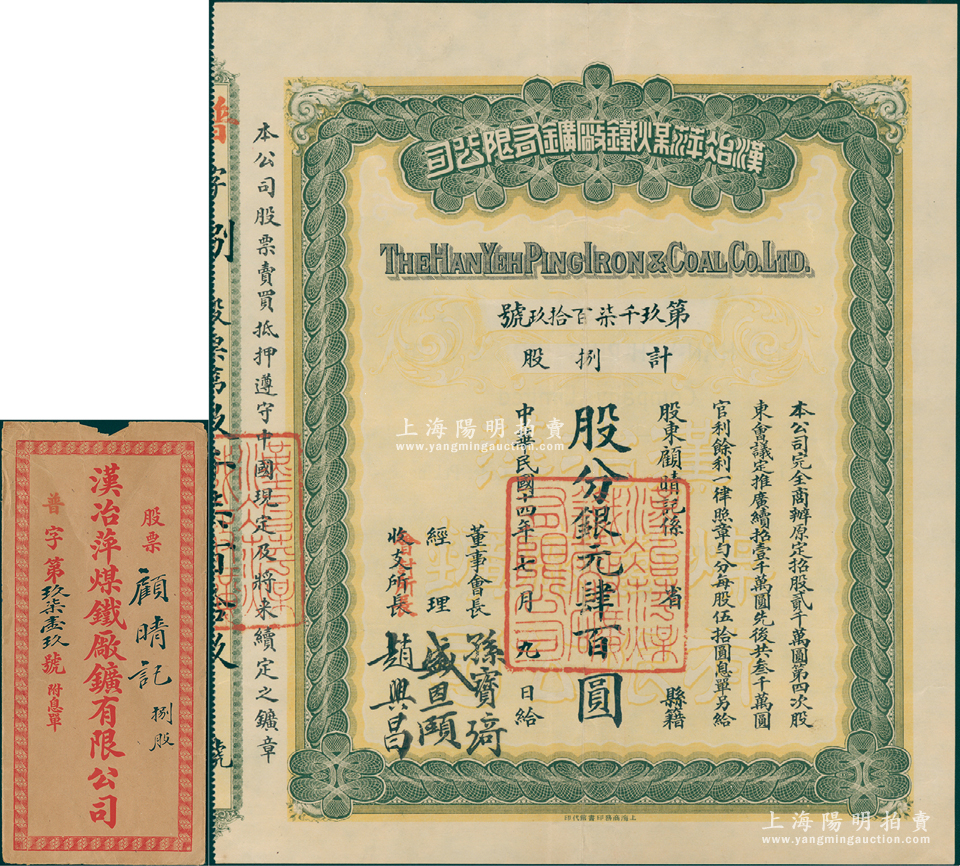 漢冶萍煤鐵廠鑛有限公司
THE HAN YEH PING IRON & COAL CO. LTD.
第玖千柒百拾玖號
計捌股
本公司完全商辦原定招股貳千萬圓第四次股
東會議定推廣續招壹千萬圓先後共叁千萬圓
官利餘利一律照章勻分每股伍拾圓息單另給
股東顧晴記係 省 縣籍
股分銀元肆百圓
中華民國十四年七月九日給
董事會長 孫寶琦
經理 盛恩頤
收支所長 趙興昌
本公司股票賣買抵押遵守中國現定及將來續定之鑛章
上海商務印書館代印
股票 顧晴記 捌股
漢冶萍煤鐵廠鑛有限公司
普字第玖柒壹玖號 附息單
上海陽明拍賣
www.yangmingauction.com
上海陽明拍賣
www.yangmingauction.com